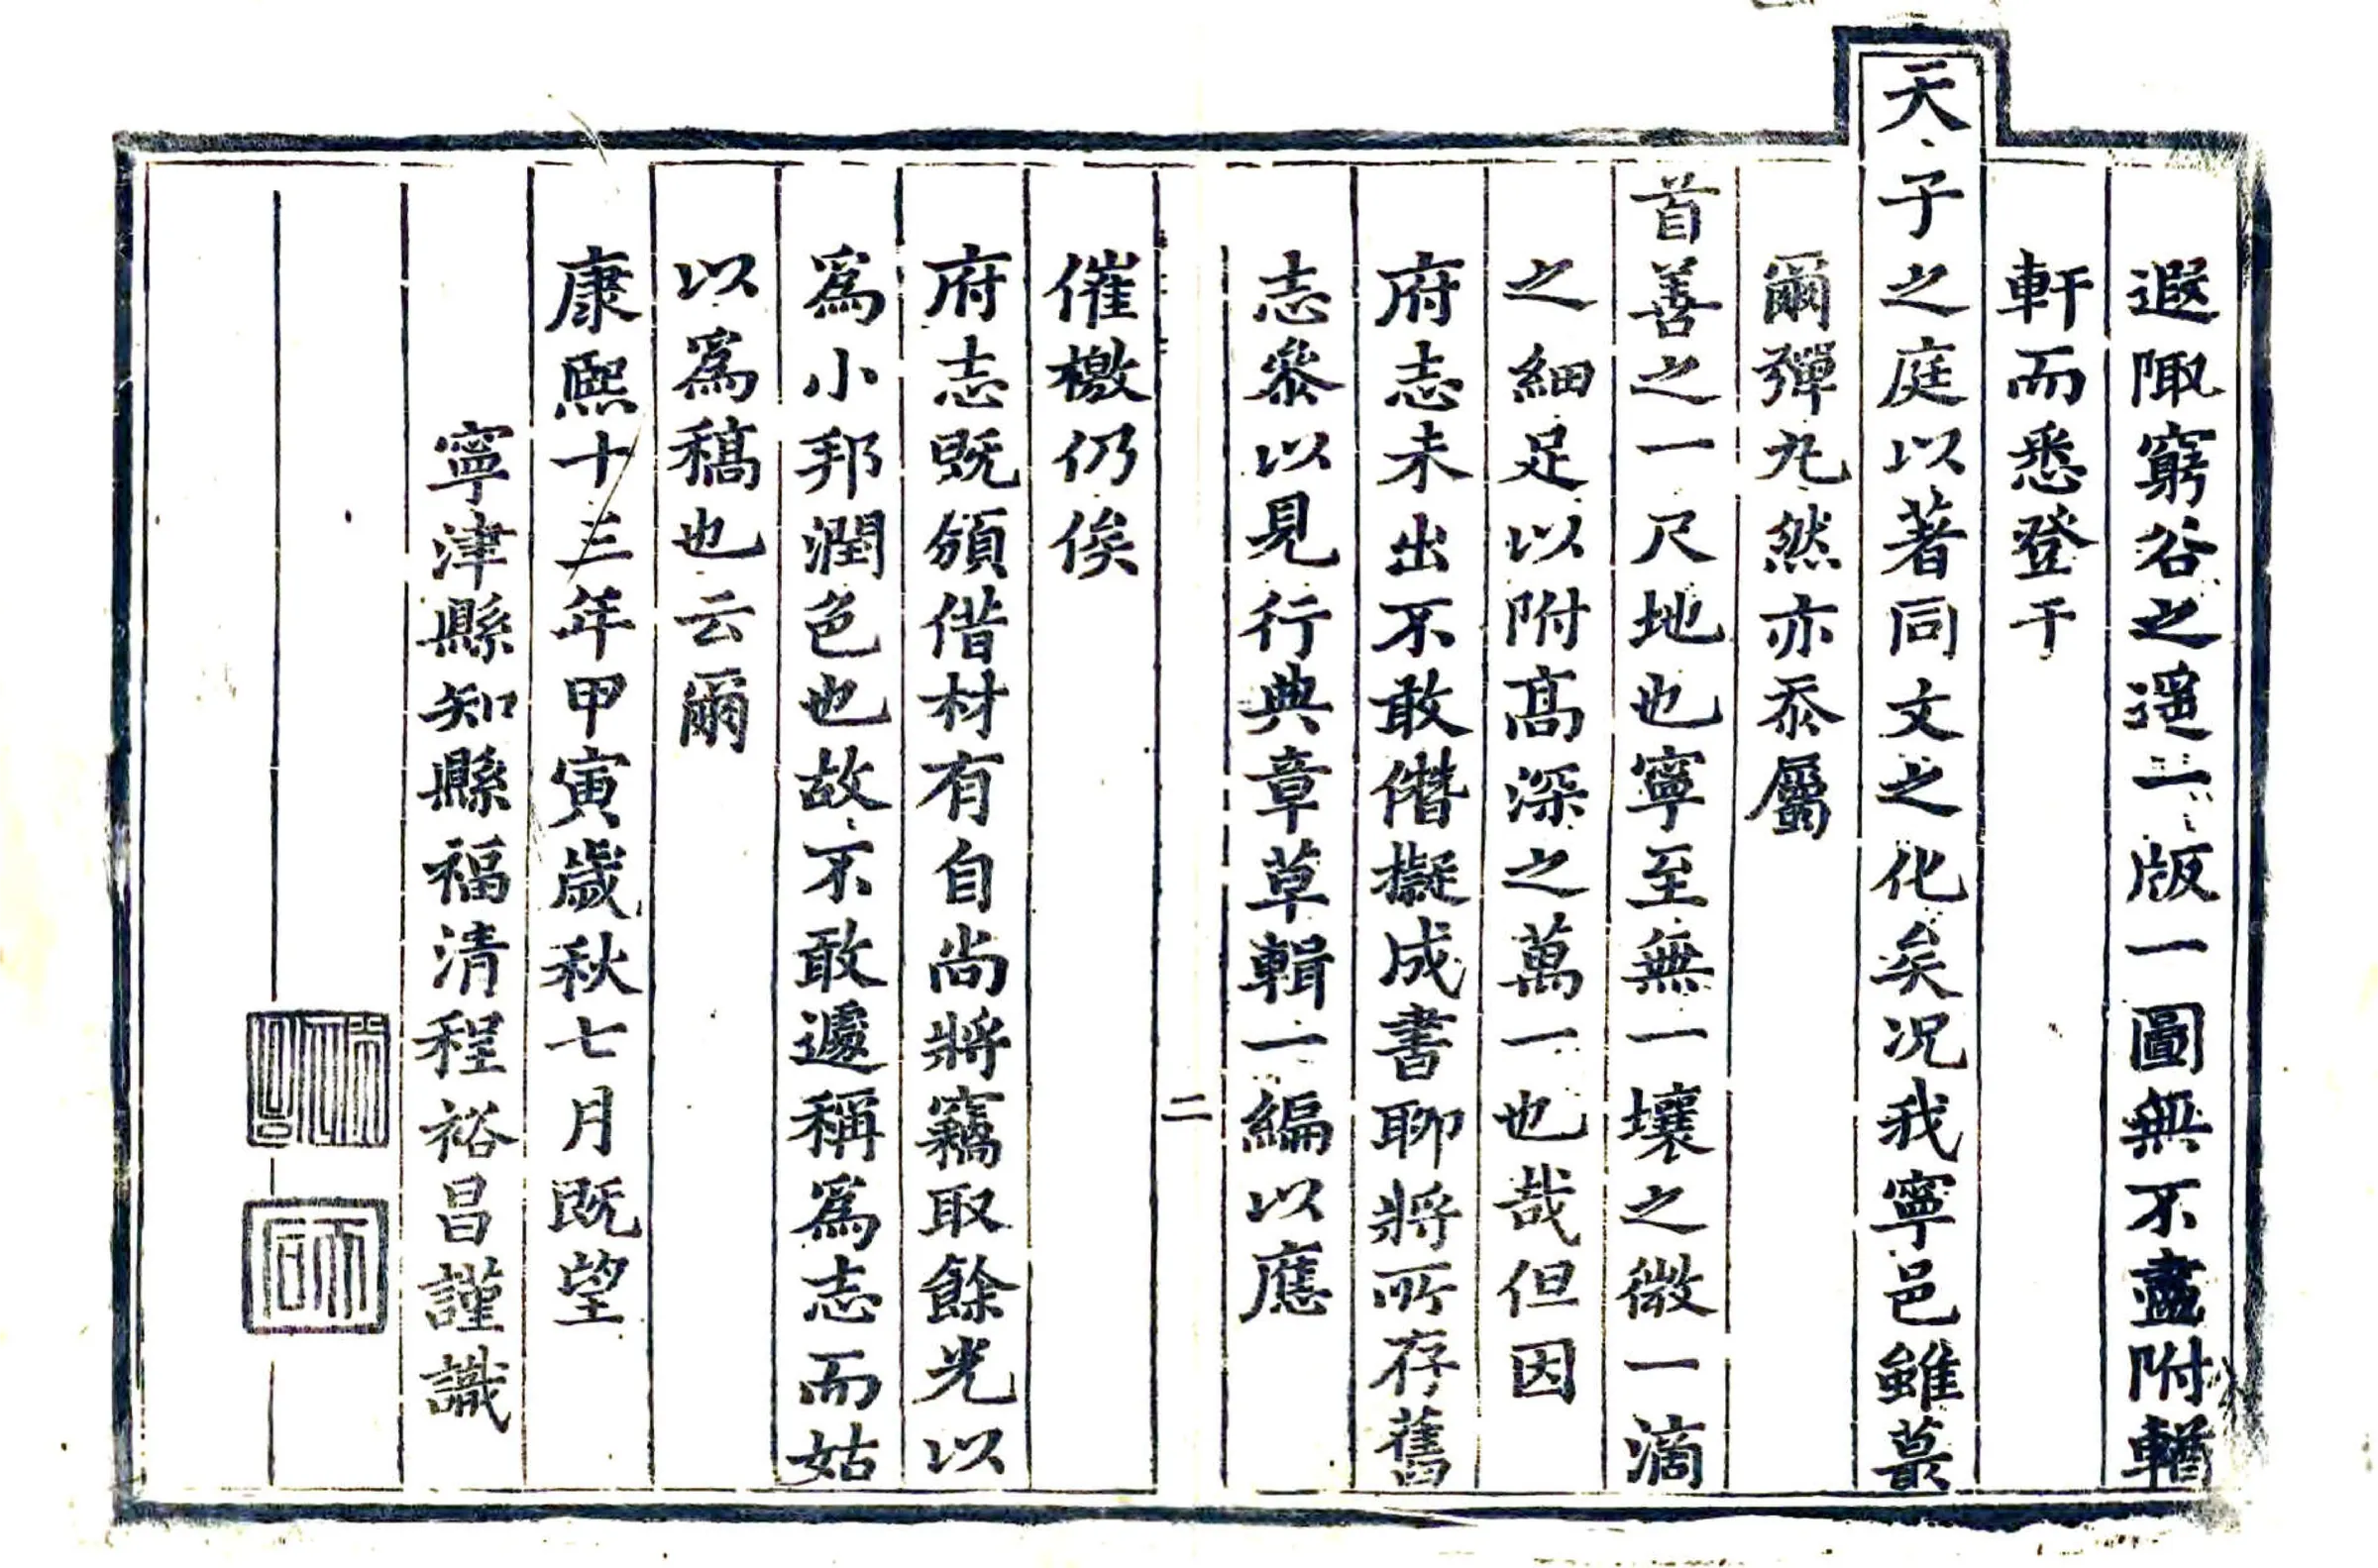 遐陬窮谷之遥一版一圖無不盡附輶
軒而悉登于
天子之庭以著同文之化矣况我寧邑雖蕞
爾彈丸然亦忝屬
首善之一尺地也寧至無一壤之微一滴
之細足以附髙深之萬一也哉但因
府志未出不敢僭擬成書聊將所存舊
志叅以見行典章草輯一編以應
二
催檄仍俟
府志既頒借材有自尚將竊取餘光以
爲小邦潤色也故不敢遽稱爲志而姑
以爲稿也云爾
康熙十三年甲寅歲秋七月既望
寧津縣知縣福清程裕昌謹識